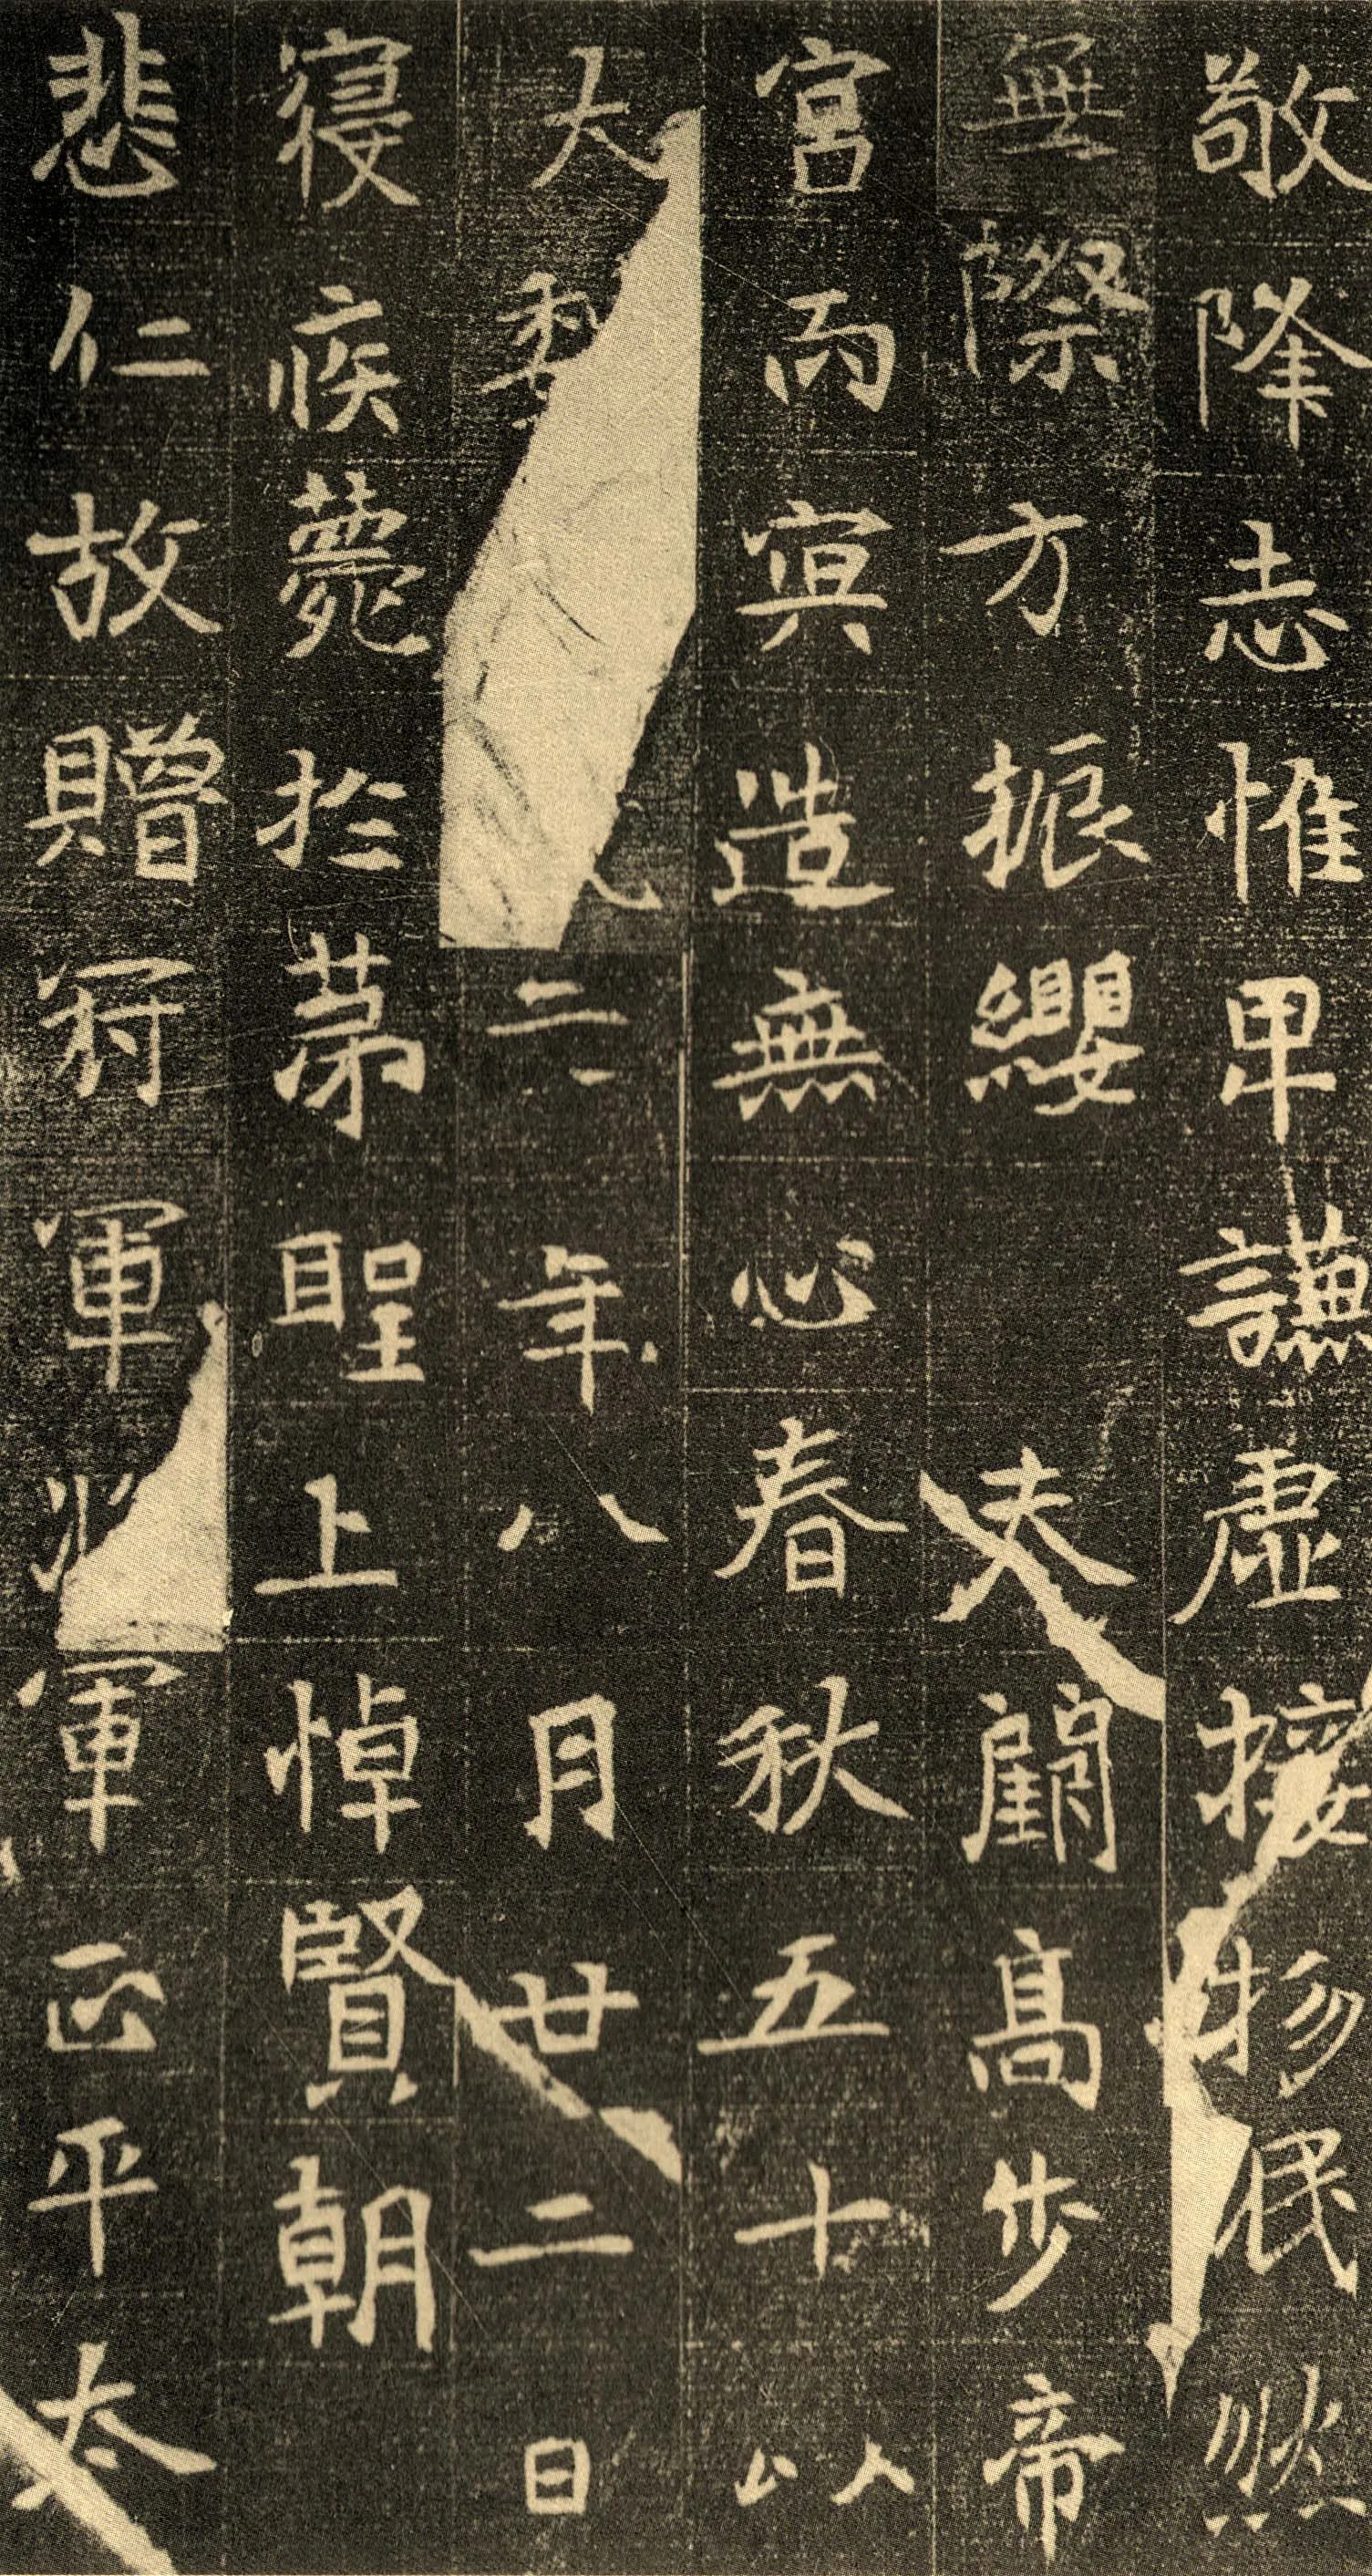 敬降志惟卑謙虛接物泯然
無際方振纓天闕高步帝
宮而冥造無心春秋五十以
大魏二年八月廿二日
寢疾薨於苐聖上悼賢朝
悲仁故贈冠軍將軍正平太